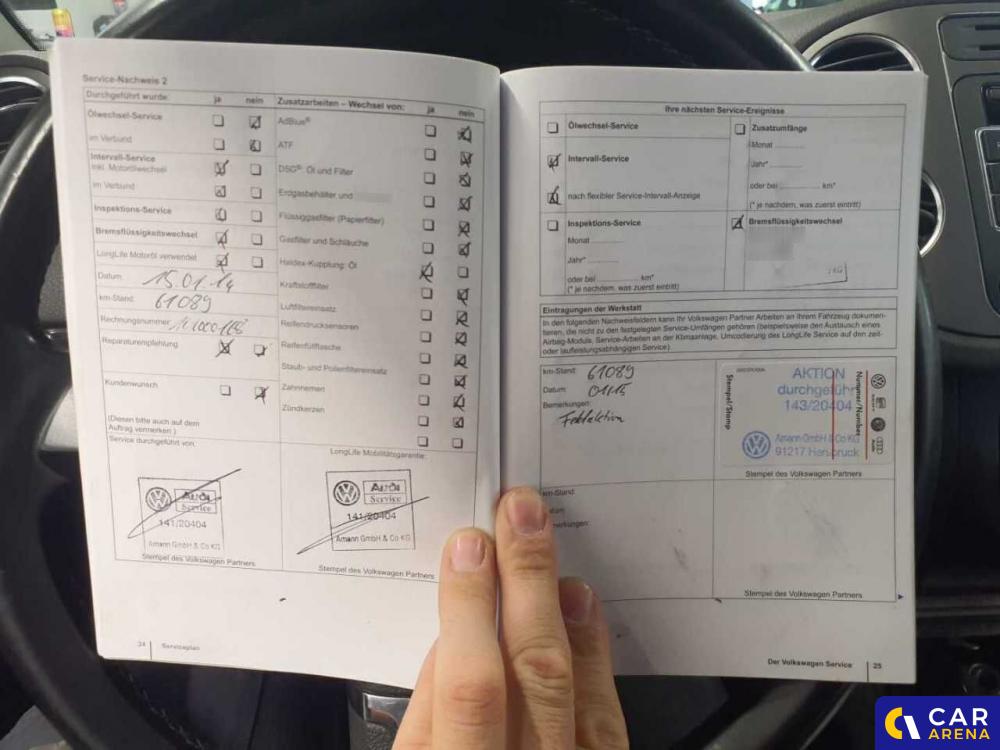 Service-Nachweis 2
Durchgeführt wurde: ja nein
Ölwechsel-Service
im Verbund
Intervall-Service
inkl. Motorölwechsel
im Verbund
Inspektions-Service
Bremsflüssigkeitswechsel
LongLife Motoröl verwendet
Datum: 15.01.14
km-Stand: 61089
Rechnungsnummer
Reparaturempfehlung
Kundenwunsch
(Diesen bitte auch auf dem
Auftrag vermerken.)
Service durchgeführt von:
AUDI
Service
141/20404
Amann GmbH & Co KG
Stempel des Volkswagen Partners
Zusatzarbeiten – Wechsel von: ja nein
AdBlue®
ATF
DSG®: Öl und Filter
Erdgasbehälter und
Flüssiggasfilter (Papierfilter)
Gasfilter und Schläuche
Haldex-Kupplung: Öl
Kraftstofffilter
Luftfiltereinsatz
Reifendrucksensoren
Reifenfüllflasche
Staub- und Pollenfiltereinsatz
Zahnriemen
Zündkerzen
LongLife Mobilitätsgarantie:
AUDI
Service
141/20404
Amann GmbH & Co KG
Stempel des Volkswagen Partners
24 Serviceplan
Ihre nächsten Service-Ereignisse
Ölwechsel-Service
Intervall-Service
nach flexibler Service-Intervall-Anzeige
Inspektions-Service
Monat
Jahr*
oder bei km*
(* je nachdem, was zuerst eintritt)
Zusatzumfänge
Monat
Jahr*
oder bei km*
(* je nachdem, was zuerst eintritt)
Bremsflüssigkeitswechsel
Eintragungen der Werkstatt
In den folgenden Nachweisfeldern kann Ihr Volkswagen Partner Arbeiten an Ihrem Fahrzeug dokumen-
tieren, die nicht zu den festgelegten Service-Umfängen gehören (beispielsweise den Austausch eines
Airbag-Moduls, Service-Arbeiten an der Klimaanlage, Umcodierung des LongLife Service auf den zeit-
oder laufleistungsabhängigen Service).
km-Stand: 61089
Datum: 01/15
Bemerkungen:
Feldaktion
Stempel/Stamp
AKTION
durchgeführt
143/20404
Amann GmbH & Co KG
91217 Hersbruck
Nummer/Number
Audi
Stempel des Volkswagen Partners
km-Stand:
Stempel des Volkswagen Partners
Der Volkswagen Service 25
CAR
ARENA